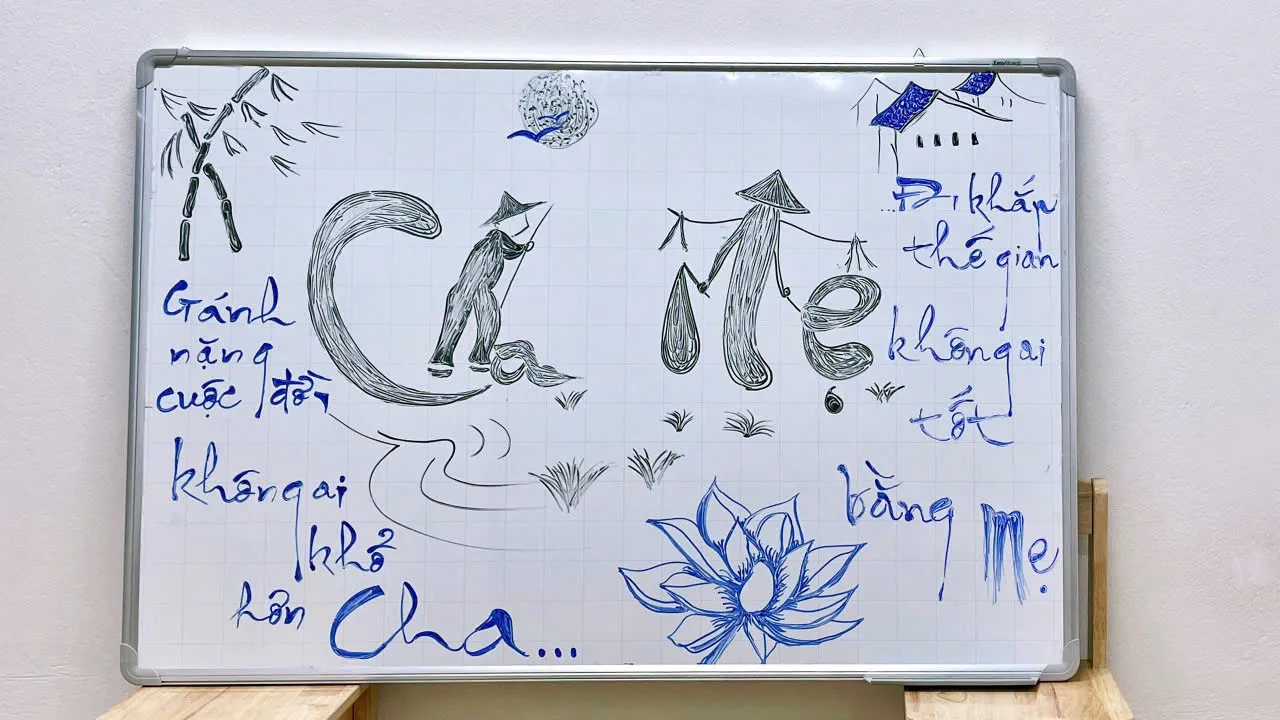 Cha Mẹ
Gánh
nặng
cuộc đời
không ai
khổ
hơn Cha...
...Đi khắp
thế gian
không ai
tốt
bằng Mẹ